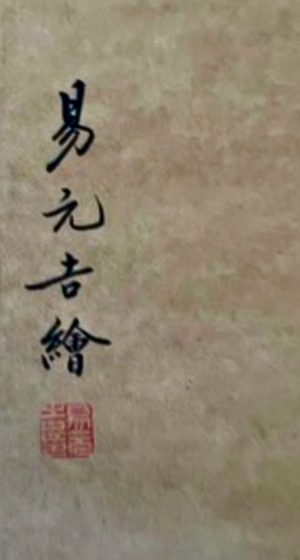 易元吉繪